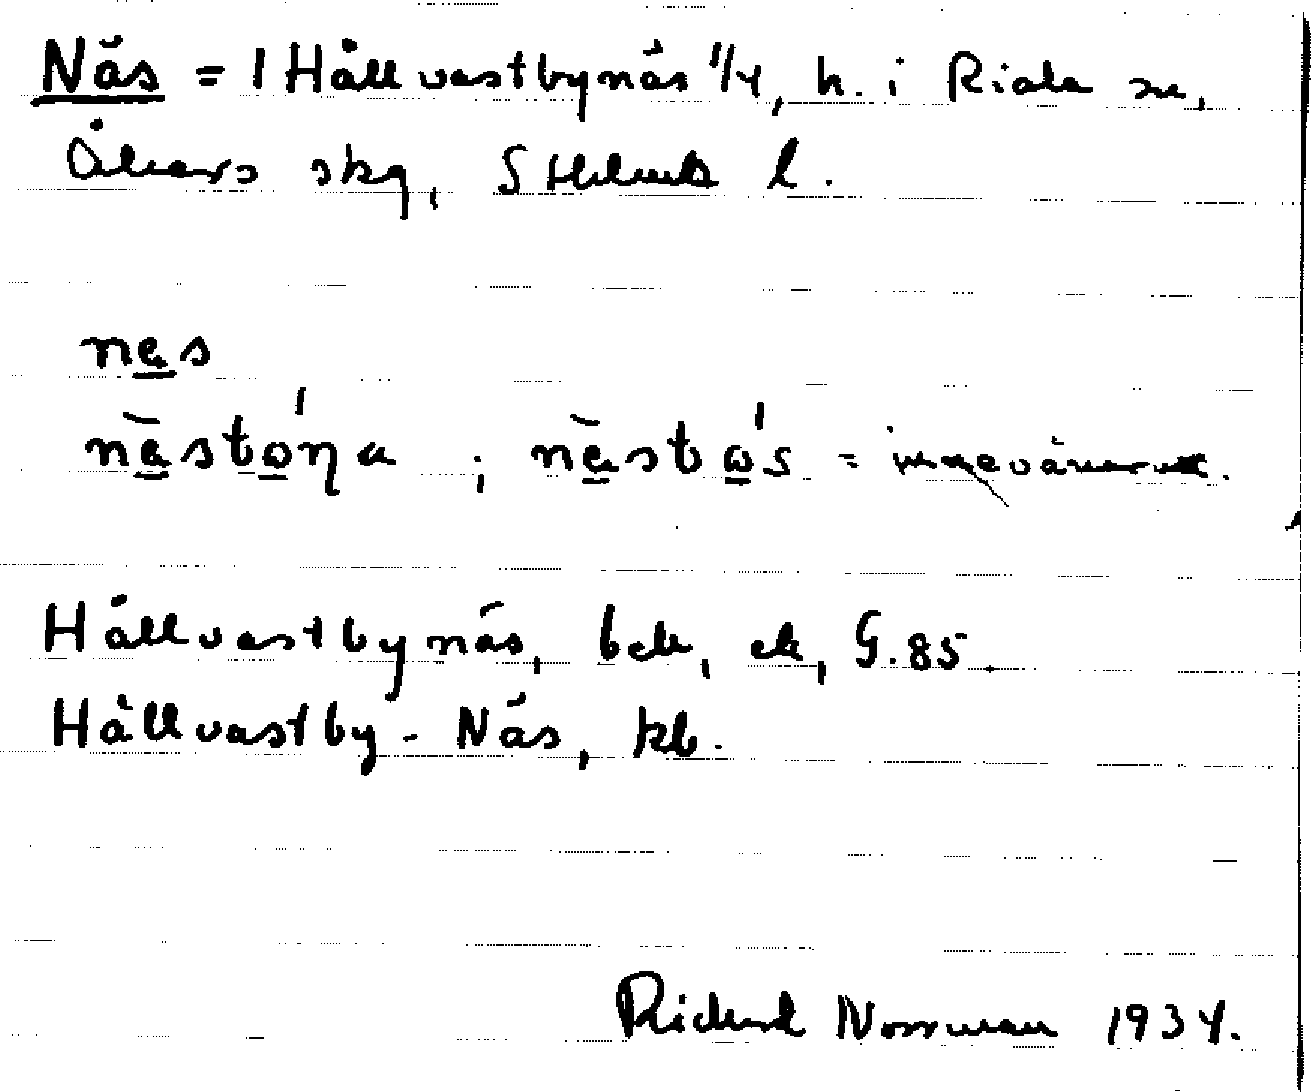 Näs = 1 Hållvastbynäs 1/4, h. i Riala sn,
Åkers skg, Sthlms l.
nes
nèstó̱ŋa ; nèstó̱s = innevånarna.
Hållvastbynäs, bck, ek, G. 85.
Hållvastby - Näs, kb.
Rickard Norrman 1934.